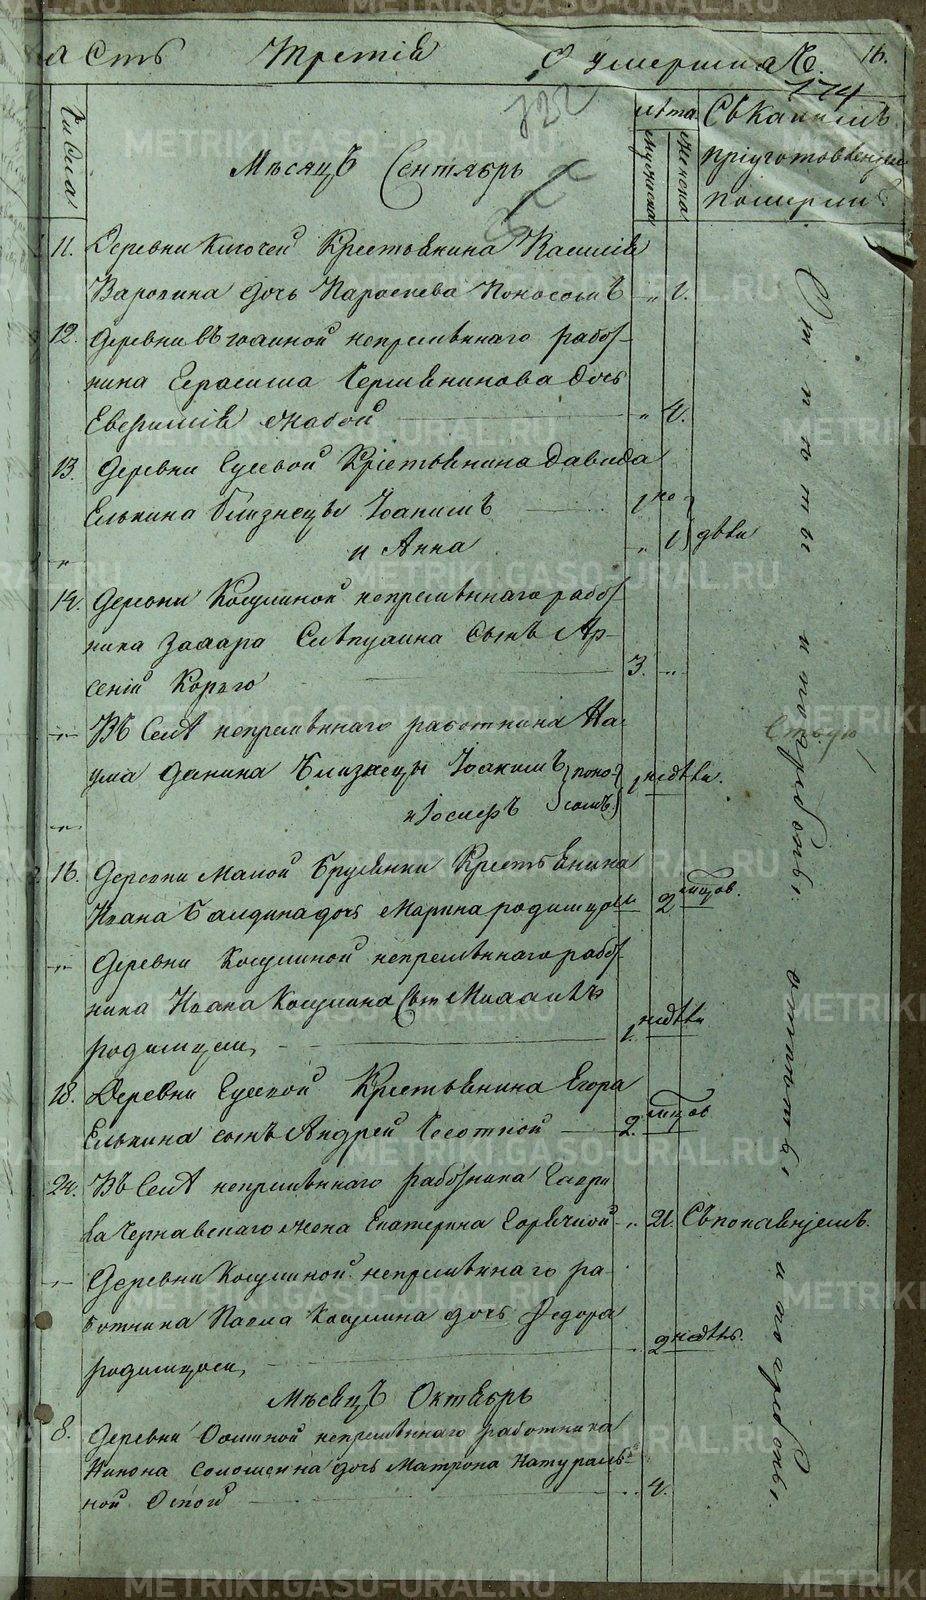 асть Третiя О умершихъ. 16.
174
122
Числа
Мѣсяцъ Сентябрь
лѣта
Мужеска
Женска
Съ какимъ
прiуготовленiемъ
померли
11. Деревни Ключей Крестьянина Василiя
Варопина дочь Параскева Поносомъ " 1.
12. Деревни непремѣннаго работ-
ника Герасима дочь
Евфимiя Жабой " 4.
13. Деревни Гусевой Крестьянина Давида
Елькина близнецы Iоакимъ 1 по
" и Анна " 1 двѣ
14. Деревни Косулиной непремѣннаго работ-
ника Захара сынъ Ар-
сенiй Корью 3. "
" Въ Селѣ непремѣннаго работника На-
ума Данина Близнецы Iоакимъ поно- 1 недѣли.
" и Iосифъ сомъ
16. Деревни Малой Брусянки Крестьянина
Ивана Балдина дочь Марина родимцомъ 2 мѣсяцов.
" Деревни Косулиной непремѣннаго работ-
ника Ивана Косулина сынъ Михаилъ
родимцем, 1. недѣли
18. Деревни Гусевой Крестьянина Егора
Елькина сынъ Андрей Чесоткой 2. мѣсяцов
24. Въ Селѣ непремѣннаго работника Гаври-
ла Чернавскаго жена Екатерина Горячкой " 21. Съ покаянiемъ.
" Деревни Косулиной непремѣннаго ра-
ботника Павла Косулина дочь Федора
родимцом, 2 недѣль.
Мѣсяцъ Октябрь
8. Деревни непремѣннаго работника
дочь Матрона Натураль-
ной Оспой " 4.
Отпѣты и погребены.
отпѣты и погребены.
METRIKI.GASO-URAL.RU